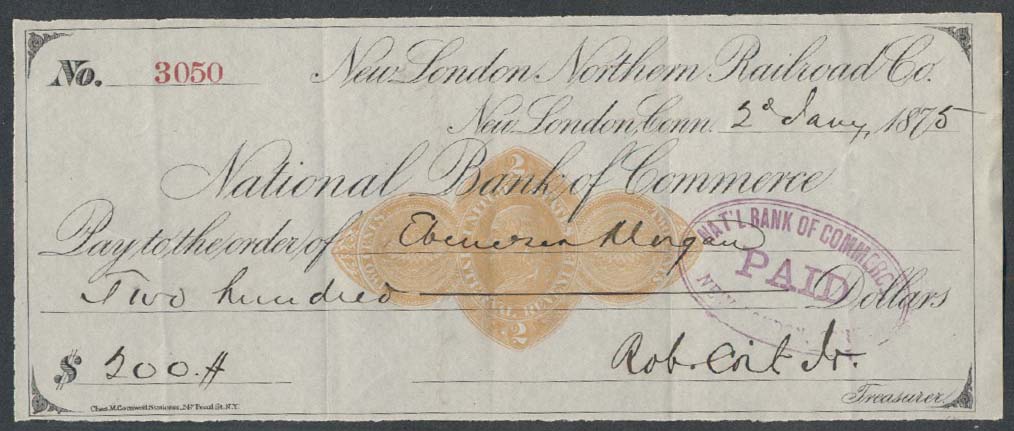 No. 3050
New London Northern Railroad Co.
New London, Conn. 2d Jany, 1875
National Bank of Commerce
Pay to the order of Ebenezer Morgan
Two hundred Dollars
$ 200.#
Rob. Coit Jr.
Treasurer.
Chas. M. Cornwell, Stationer, 247 Pearl St. N.Y.
2
UNITED STATES
INTERNAL REVENUE
2
NAT'L BANK OF COMMERCE
PAID
NEW LONDON